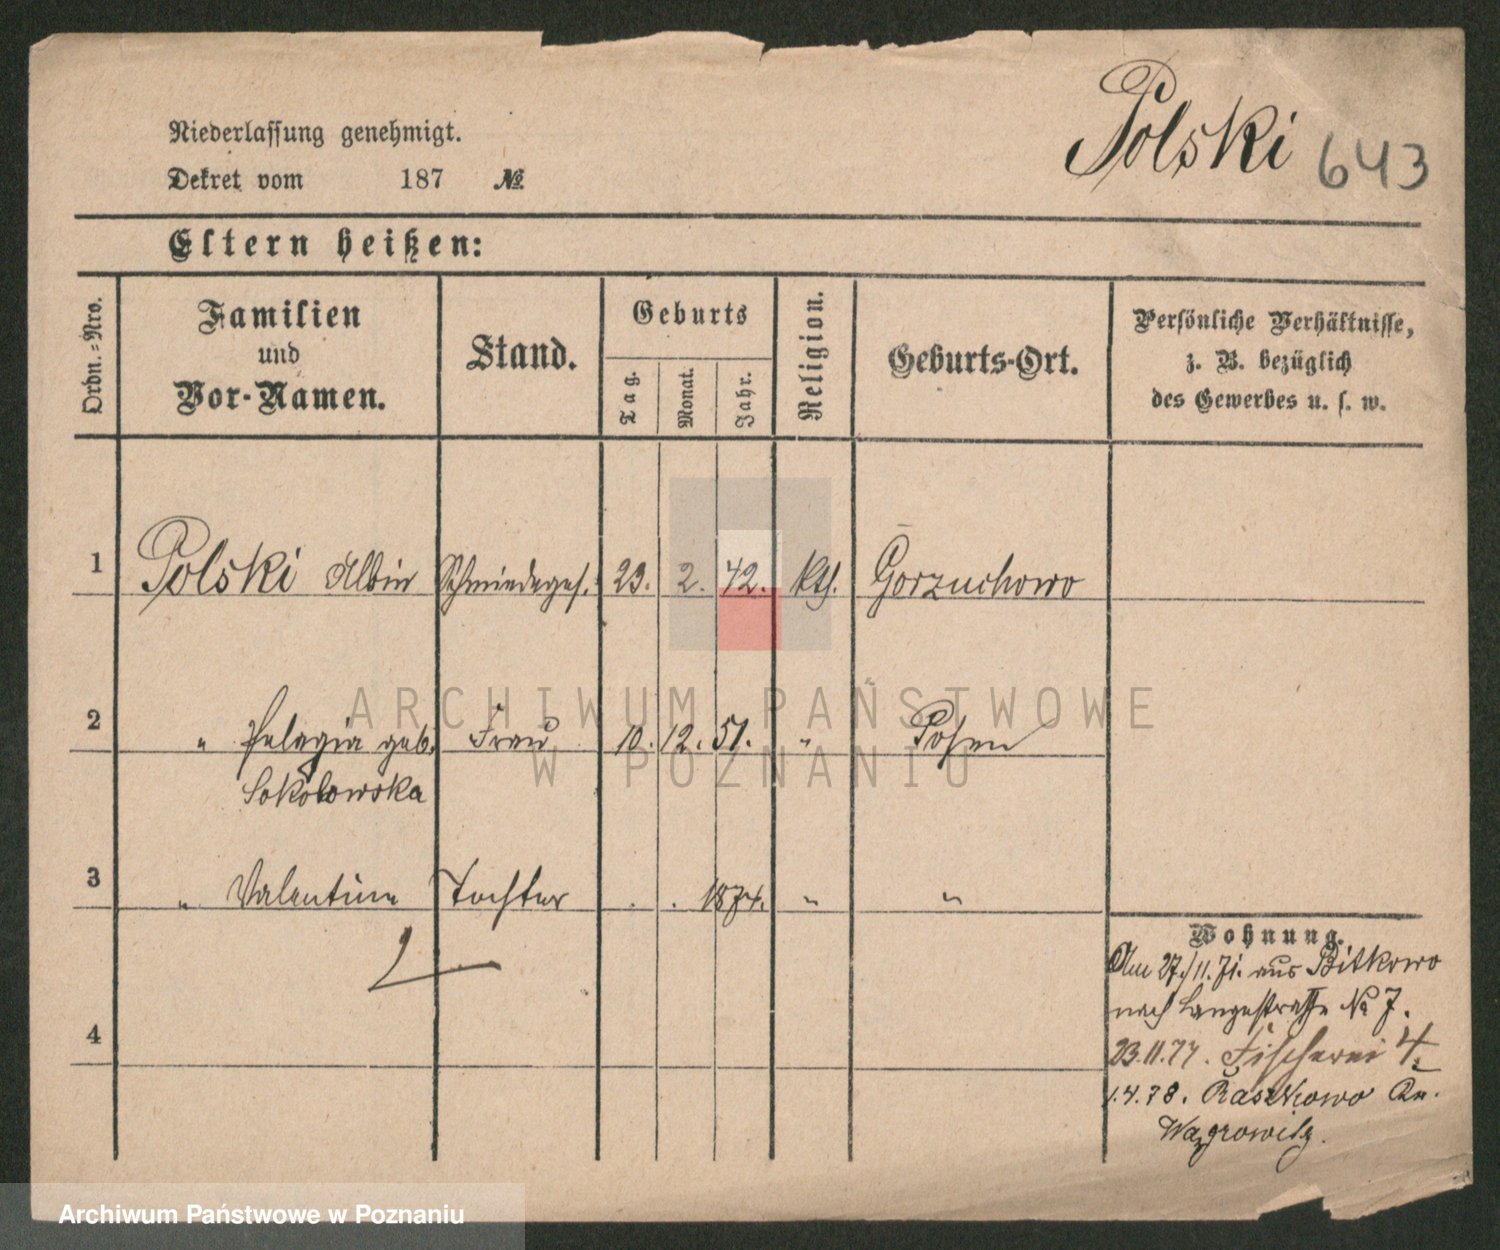 Polski 643
Niederlassung genehmigt.
Dekret vom 187 №
Eltern heißen:
Ordn.=Nro.
Familien
und
Vor-Namen.
Stand.
Geburts
Tag.
Monat.
Jahr.
Religion.
Geburts-Ort.
Persönliche Verhältnisse,
z. B. bezüglich
des Gewerbes u. s. w.
1 Polski Albin Schmiedeges. 23. 2. 42. kth. Gorzuchowo
2 " Pelagia geb. Frau 10. 12. 51. " Posen
Sokolowska
3 " Valentine Tochter . . 1874. " "
4
Wohnung.
Am 27./11. 71. aus Bitkowo
nach Langestraße № 7.
23.11.77. Fischerei 4.
1.4.78. Raszkowo Kr.
Wągrowitz.
ARCHIWUM PAŃSTWOWE
W POZNANIU
Archiwum Państwowe w Poznaniu